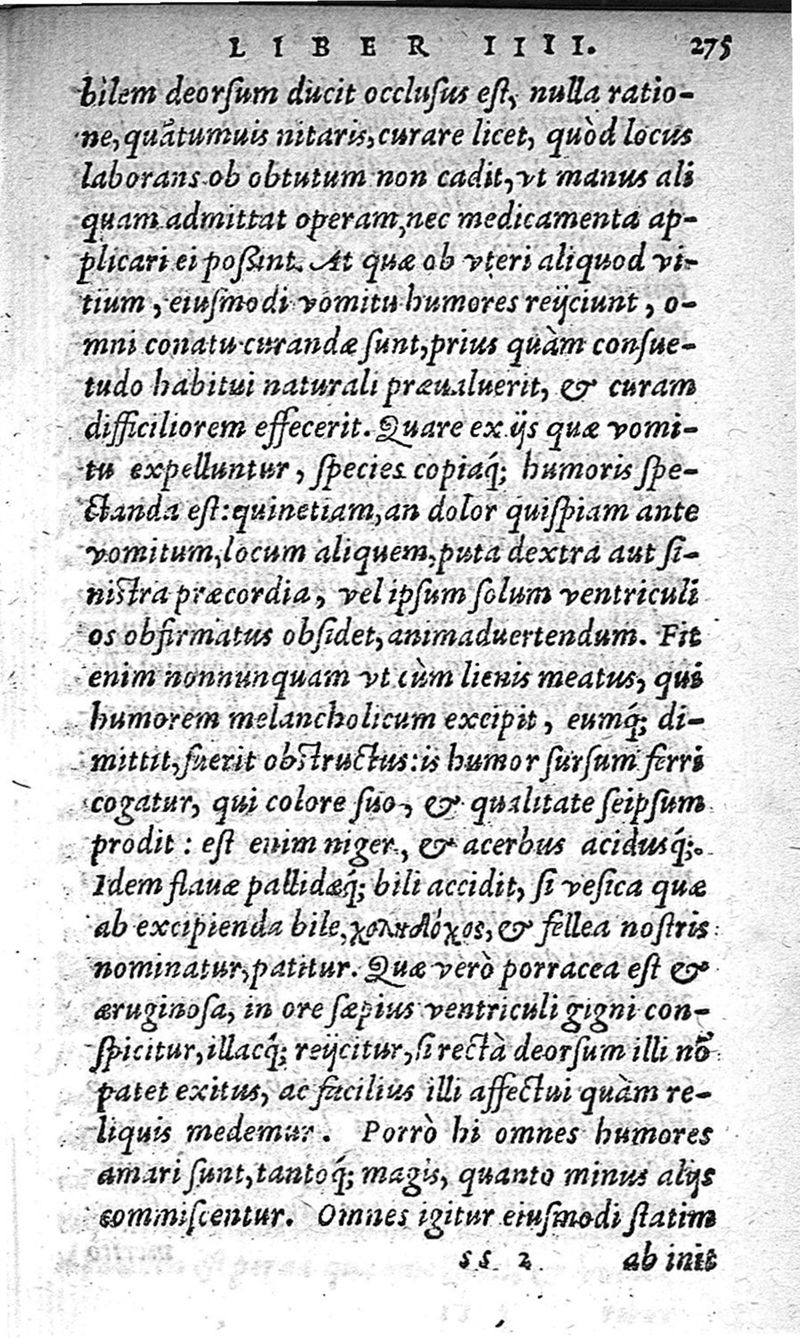 LIBER IIII. 275
bilem deorſum ducit occluſus eſt, nulla ratio-
ne, quātumuis nitaris, curare licet, quòd locus
laborans ob obtutum non cadit, vt manus ali
quam admittat operam, nec medicamenta ap-
plicari ei poſſint. At quæ ob vteri aliquod vi-
tium, eiuſmodi vomitu humores reijciunt, o-
mni conatu curandæ ſunt, prius quàm conſue-
tudo habitui naturali præualuerit, & curam
difficiliorem effecerit. Quare ex ijs quæ vomi-
tu expelluntur, ſpecies copiaq́; humoris ſpe-
ctanda eſt: quinetiam, an dolor quiſpiam ante
vomitum, locum aliquem, puta dextra aut ſi-
niſtra præcordia, vel ipſum ſolum ventriculi
os obfirmatus obſidet, animaduertendum. Fit
enim nonnunquam vt cùm lienis meatus, qui
humorem melancholicum excipit, eumq́; di-
mittit, fuerit obſtructus: is humor ſurſum ferri
cogatur, qui colore ſuo, & qualitate ſeipſum
prodit: eſt enim niger, & acerbus acidusq́;.
Idem flauæ pallidæq́; bili accidit, ſi veſica quæ
ab excipienda bile, χοληδόχος, & fellea noſtris
nominatur, patitur. Quæ verò porracea eſt &
æruginoſa, in ore ſæpius ventriculi gigni con-
ſpicitur, illacq́; reijcitur, ſi rectà deorſum illi nō
patet exitus, ac facilius illi affectui quàm re-
liquis medemur. Porrò hi omnes humores
amari ſunt, tantoq́; magis, quanto minus alijs
commiſcentur. Omnes igitur eiuſmodi ſtatim
ss 2 ab init